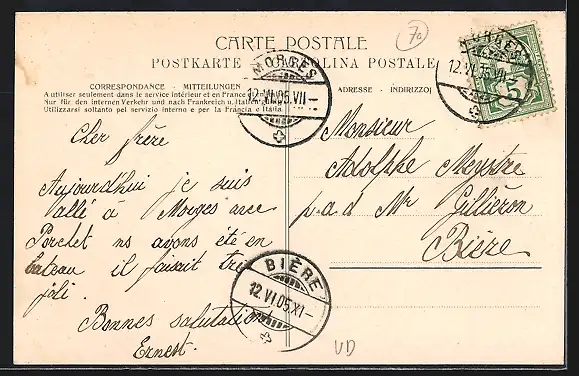 7a
CARTE POSTALE
POSTKARTE — CAROLINA POSTALE
CORRESPONDANCE - MITTEILUNGEN
ADRESSE - INDIRIZZO
A utiliser seulement dans le service intérieur et en France
Nur für den internen Verkehr und nach Frankreich u. Italien
Utilizzarsi soltanto pel servizio interno e per la Francia e Italia.
MORGES
12.VI.05.VII
MORGES
12.VI.05.VII
5
Cher frère
Aujourd'hui je suis
allé à Morges avec
Porchet ns avons été en
bateau il faisait très
joli.
Bonnes salutations
Ernest.
Monsieur
Adolphe
p.a.d Mr Gilliéron
Bière
BIÈRE
12.VI.05.XI
VD